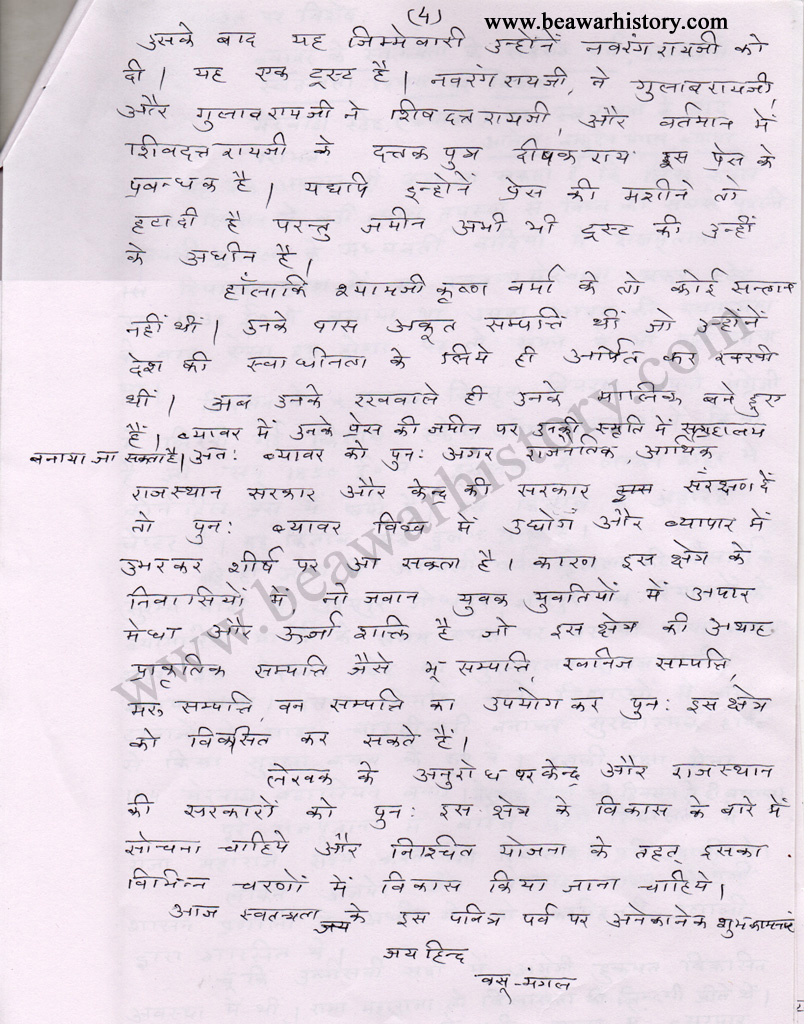 (4)
www.beawarhistory.com
उसके बाद यह जिम्मेवारी उन्होंनें नवरंगरायजी को
दी। यह एक ट्रस्ट है। नवरंगरायजी, ने गुलाबरायजी,
और गुलाबरायजी ने शिवदत्तरायजी और वर्तमान में
शिवदत्तरायजी के दत्तक पुत्र दीपकराय इस प्रेस के
प्रबन्धक है। यद्यपि इन्होनें प्रेस की मशीने तो
हटादी है परन्तु जमीन अभी भी ट्रस्ट की उन्हीं
के अधीन है।
हाँलाकि श्यामजी कृष्ण वर्मा के तो कोई सन्तान
नहीं थी। उनके पास अकूत सम्पत्ति थीं जो उन्होंनें
देश की स्वाधीनता के लिये ही अर्पित कर रक्खी
थीं। अब उनके रखवाले ही उनके मालिक बने हुए
हैं। ब्यावर में उनके प्रेस की जमीन पर उनकी स्मृति में संग्रहालय
बनाया जा सकता है। अतः ब्यावर को पुनः अगर राजनैतिक, आर्थिक
राजस्थान सरकार और केन्द्र की सरकार संरक्षण दें
तो पुनः ब्यावर विश्व में उद्योग और व्यापार में
उभरकर शीर्ष पर आ सकता है। कारण इस क्षेत्र के
निवासियों में नौजवान युवक युवतियों में अपार
मेधा और ऊर्जा शक्ति है जो इस क्षेत्र की अथाह
प्राकृतिक सम्पत्ति जैसे भू सम्पत्ति, खनिज सम्पत्ति,
मरू सम्पत्ति, वन सम्पत्ति का उपयोग कर पुनः इस क्षेत्र
को विकसित कर सकते हैं।
लेखक के अनुरोध पर केन्द्र और राजस्थान
की सरकारों को पुनः इस क्षेत्र के विकास के बारे में
सोचना चाहिये और निश्चित योजना के तहत् इसका
विभिन्न चरणों में विकास किया जाना चाहिये।
आज स्वतन्त्रता जय के इस पवित्र पर्व पर अनेकानेक शुभकामनाएं
जय हिन्द
वासु-मंगल
www.beawarhistory.com